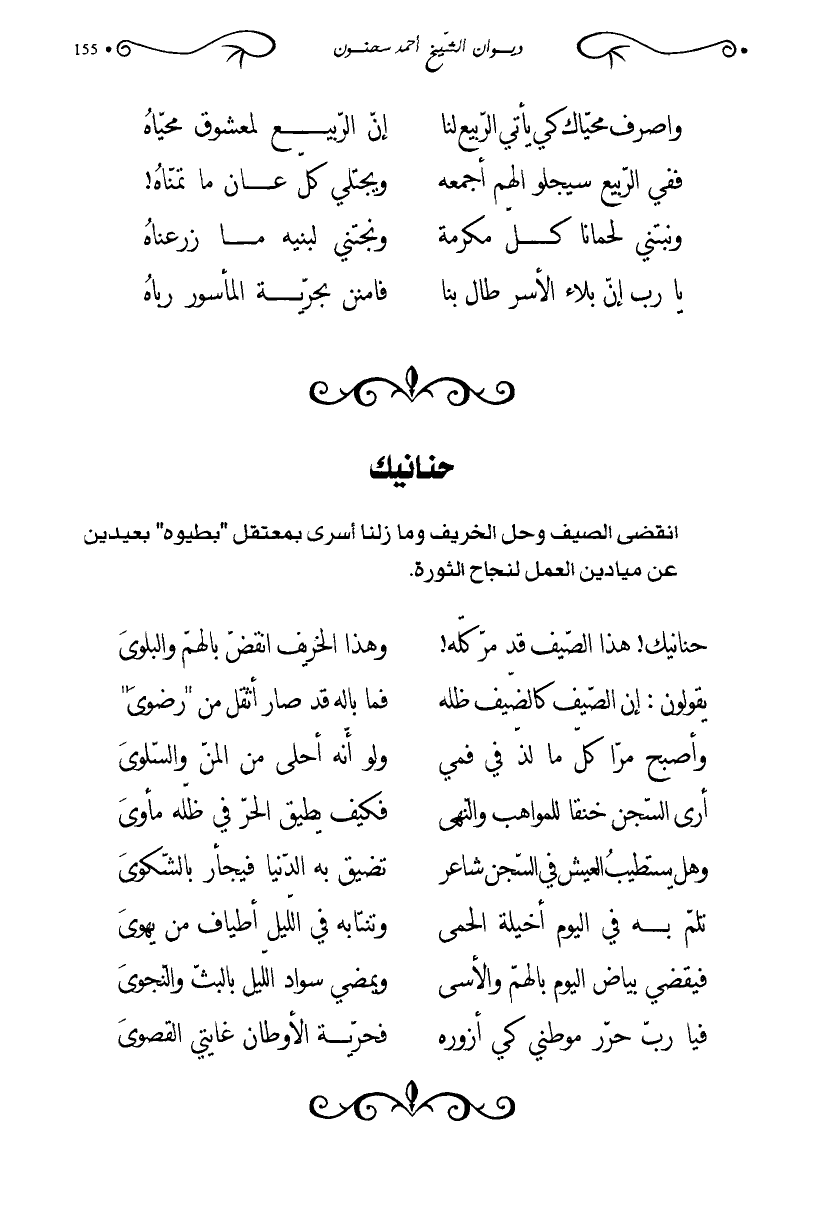 ديوان الشّيخ أحمد سحنون 155
واصرف محيّاك كي يأتي الرّبيع لنا إنّ الرّبيع لمعشوق محيّاهُ
ففي الرّبيع سيجلو الهم أجمعه ويجتلي كلّ عان ما تمنّاهُ!
ونبتني لحمانا كلّ مكرمة ونجتني لبنيه ما زرعناهُ
يا رب إنّ بلاء الأسر طال بنا فامنن بحريّة المأسور رباهُ
حنانيك
انقضى الصيف وحل الخريف وما زلنا أسرى بمعتقل "بطيوه" بعيدين
عن ميادين العمل لنجاح الثورة.
حنانيك! هذا الصّيف قد مرّ كلّه! وهذا الخريف انقضّ بالهمّ والبلوىَ
يقولون : إن الصّيف كالضّيف ظله فما باله قد صار أثقل من "رضوىَ"
وأصبح مرّا كلّ ما لذّ في فمي ولو أنّه أحلى من المنّ والسّلوىَ
أرى السّجن خنقا للمواهب والنّهى فكيف يطيق الحرّ في ظلّه مأوىَ
وهل يستطيبُ العيش في السّجن شاعر تضيق به الدّنيا فيجأر بالشّكوىَ
تلمّ به في اليوم أخيلة الحمى وتنتابه في اللّيل أطياف من يهوىَ
فيقضي بياض اليوم بالهمّ والأسى ويمضي سواد اللّيل بالبثّ والنّجوىَ
فيا ربّ حرّر موطني كي أزوره فحريّة الأوطان غايتي القصوىَ